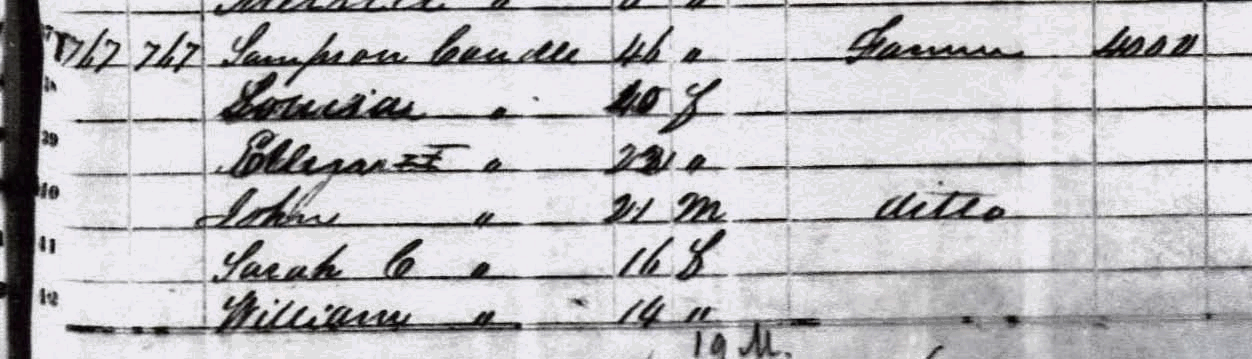 767 767 Sampson Caudle 46 " Farmer 4000
Louisia " 40 f
39 " 23 "
40 John " 21 M ditto
41 Sarah C " 16 f
42 William " 14 "
19 M.